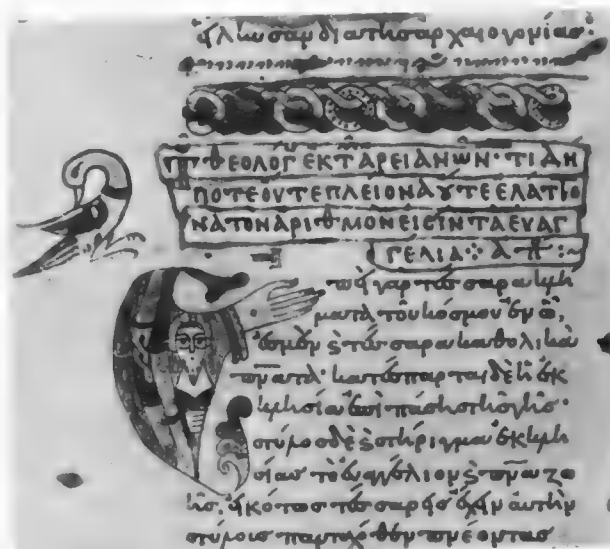 ἥλκυσαν διὰ τῆς ἀρχαιογονίας·
ΘΕΟΛΟΓ ΕΚ Τ ΑΡΕΙΑΝΩΝ· ΤΙ ΔΗ
ΠΟΤΕ ΟΥΤΕ ΠΛΕΙΟΝΑ ȢΤΕ ΕΛΑΤΤΟ
ΝΑ ΤΟΝ ΑΡΙΘΜΟΝ ΕΙCΙΝ ΤΑ ΕΥΑΓ
ΓΕΛΙΑ
Ἐπεὶ γὰρ τέσσαρα κλή
ματα τοῦ κόσμου ἐν ᾧ
ἐσμὲν ϗ τέσσαρα καθολικὰ
πν̅α̅τα· κατέσπαρται δὲ ἡ ἐκ
κλησία ἐπὶ πάσης τῆς γῆς·
στύλος δὲ ϗ στήριγμα ἐκκλη
σίας τὸ εὐαγγέλιον ϗ πν̅α̅ ζω
ῆς, εἰκότως τέσσαρας ἔχειν αὐτὴν
στύλους πανταχόθεν πνέοντας